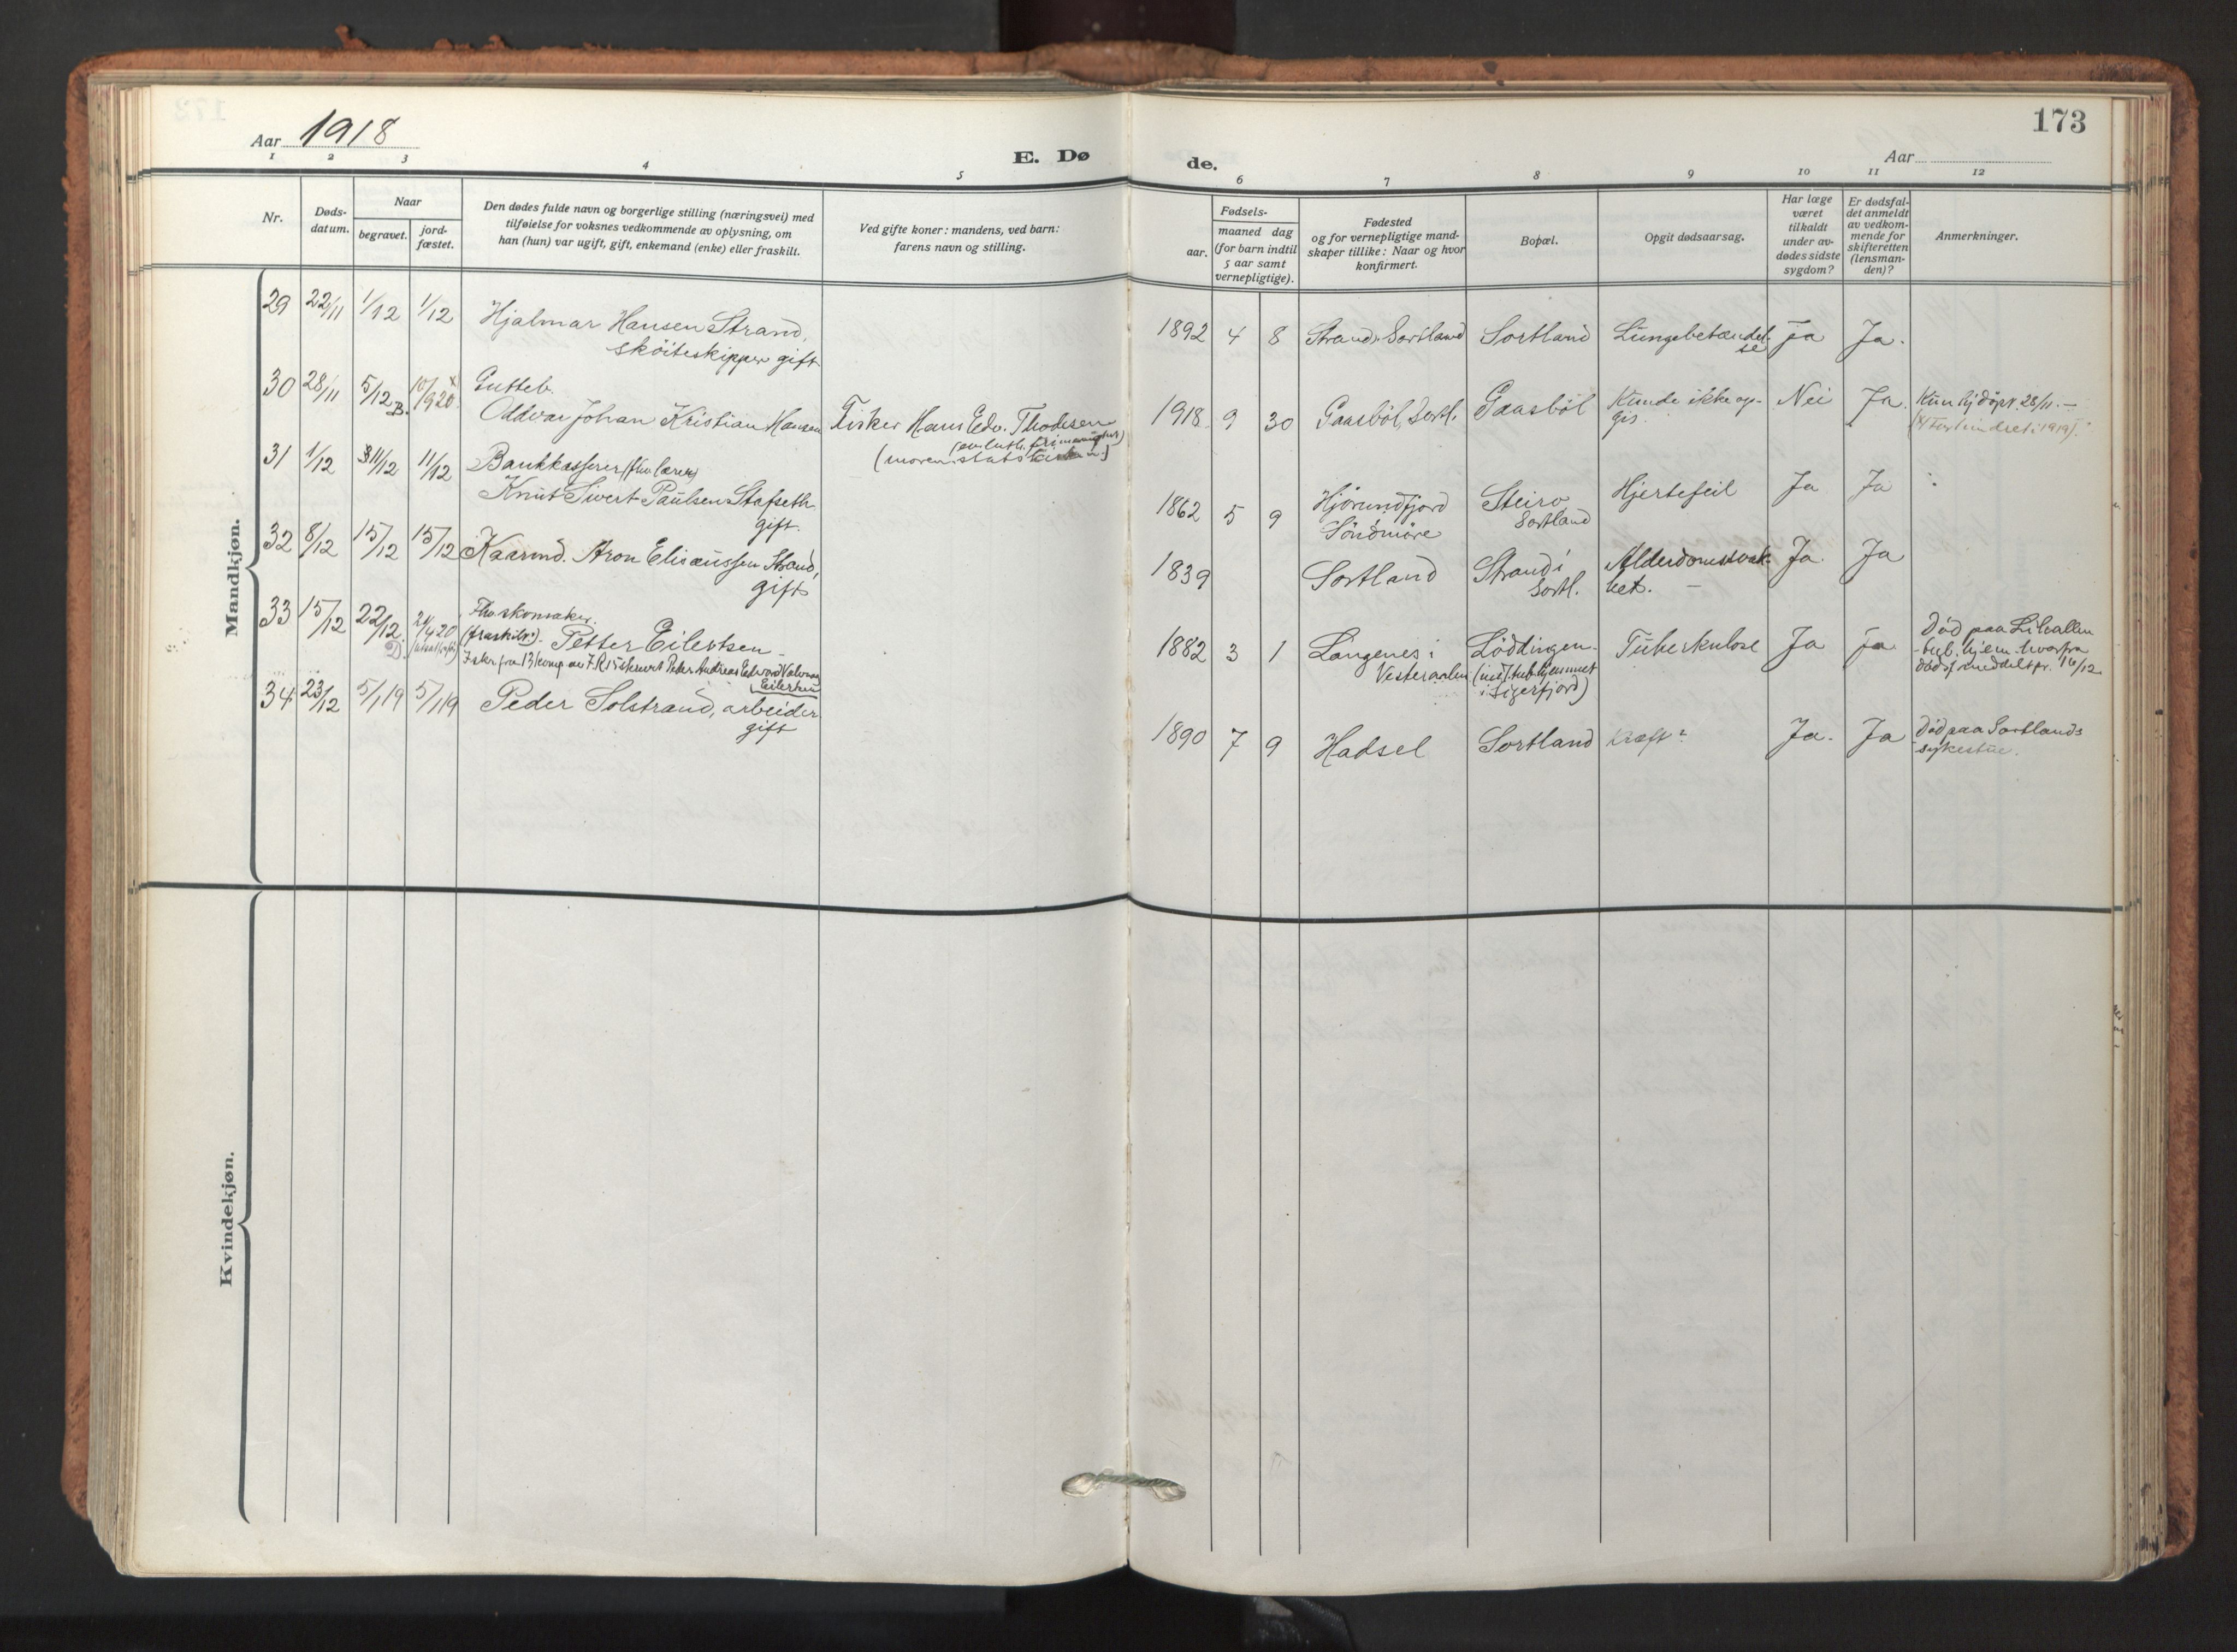 173
Aar 1918
E. Dø
de.
Aar
1 2 3 4 5 6 7 8 9 10 11 12
Nr.
Døds-
datum.
Naar
begravet.
jord-
fæstet.
Den dødes fulde navn og borgerlige stilling (næringsvei) med
tilføielse for voksnes vedkommende av oplysning, om
han (hun) var ugift, gift, enkemand (enke) eller fraskilt.
Ved gifte koner: mandens, ved barn:
farens navn og stilling.
Fødsels-
aar.
maaned dag
(for barn indtil
5 aar samt
vernepligtige).
Fødested
og for vernepligtige mand-
skaper tillike: Naar og hvor
konfirmert.
Bopæl.
Opgit dødsaarsag.
Har læge
været
tilkaldt
under av-
dødes sidste
sygdom?
Er dødsfal-
det anmeldt
av vedkom-
mende for
skifteretten
(lensman-
den)?
Anmerkninger.
Mandkjøn.
29 22/11 1/12 1/12 Hjalmar Hansen Strand,
skøiteskipper gift
1892 4 8 Strand, Sortland Sortland Lungebetændel-
se
ja Ja.
30 28/11 5/12 B. 10/9 20 x
Gutteb.
Oddvar Johan Kristian Hansen Fisker Hans Edv. Thodesen
(moren statskirken)
1918 9 30 Gaasbøl, Sortl. Gaasbøl Kunde ikke op-
gis.
Nei Ja. Kun hjdøpt 28/11.—
31 1/12 11/12 11/12 Bankkasserer (fhv. lærer)
Knut Sivert Paulsen Stafseth
gift.
1862 5 9 Hjørundfjord
Søndmøre
Steiro
Sortland
Hjertefeil Ja Ja
32 8/12 15/12 15/12 Kaarmd. Aron Elisæussen Strand,
gift
1839 Sortland Strand i
Sortl.
Alderdomssvak-
het. —
Ja. Ja
33 15/12 22/12 D.
Fhv. skomaker.
(fraskilt). Petter Eilertsen —
Eilertsen
1882 3 1 Langenes i
Vesteraalen
Løddingen
(ind. tub.hjemmet
i Sigerfjord)
Tuberkulose Ja ja Død paa Lilvallen
tub. hjem hvorfra
dødsf. meddelt pr. 16/12
34 23/12 5/1 19 5/1 19 Peder Solstrand, arbeider
gift
1890 7 9 Hadsel Sortland Kræft? Ja. Ja Død paa Sortlands
sykestue.
Kvindekjøn.